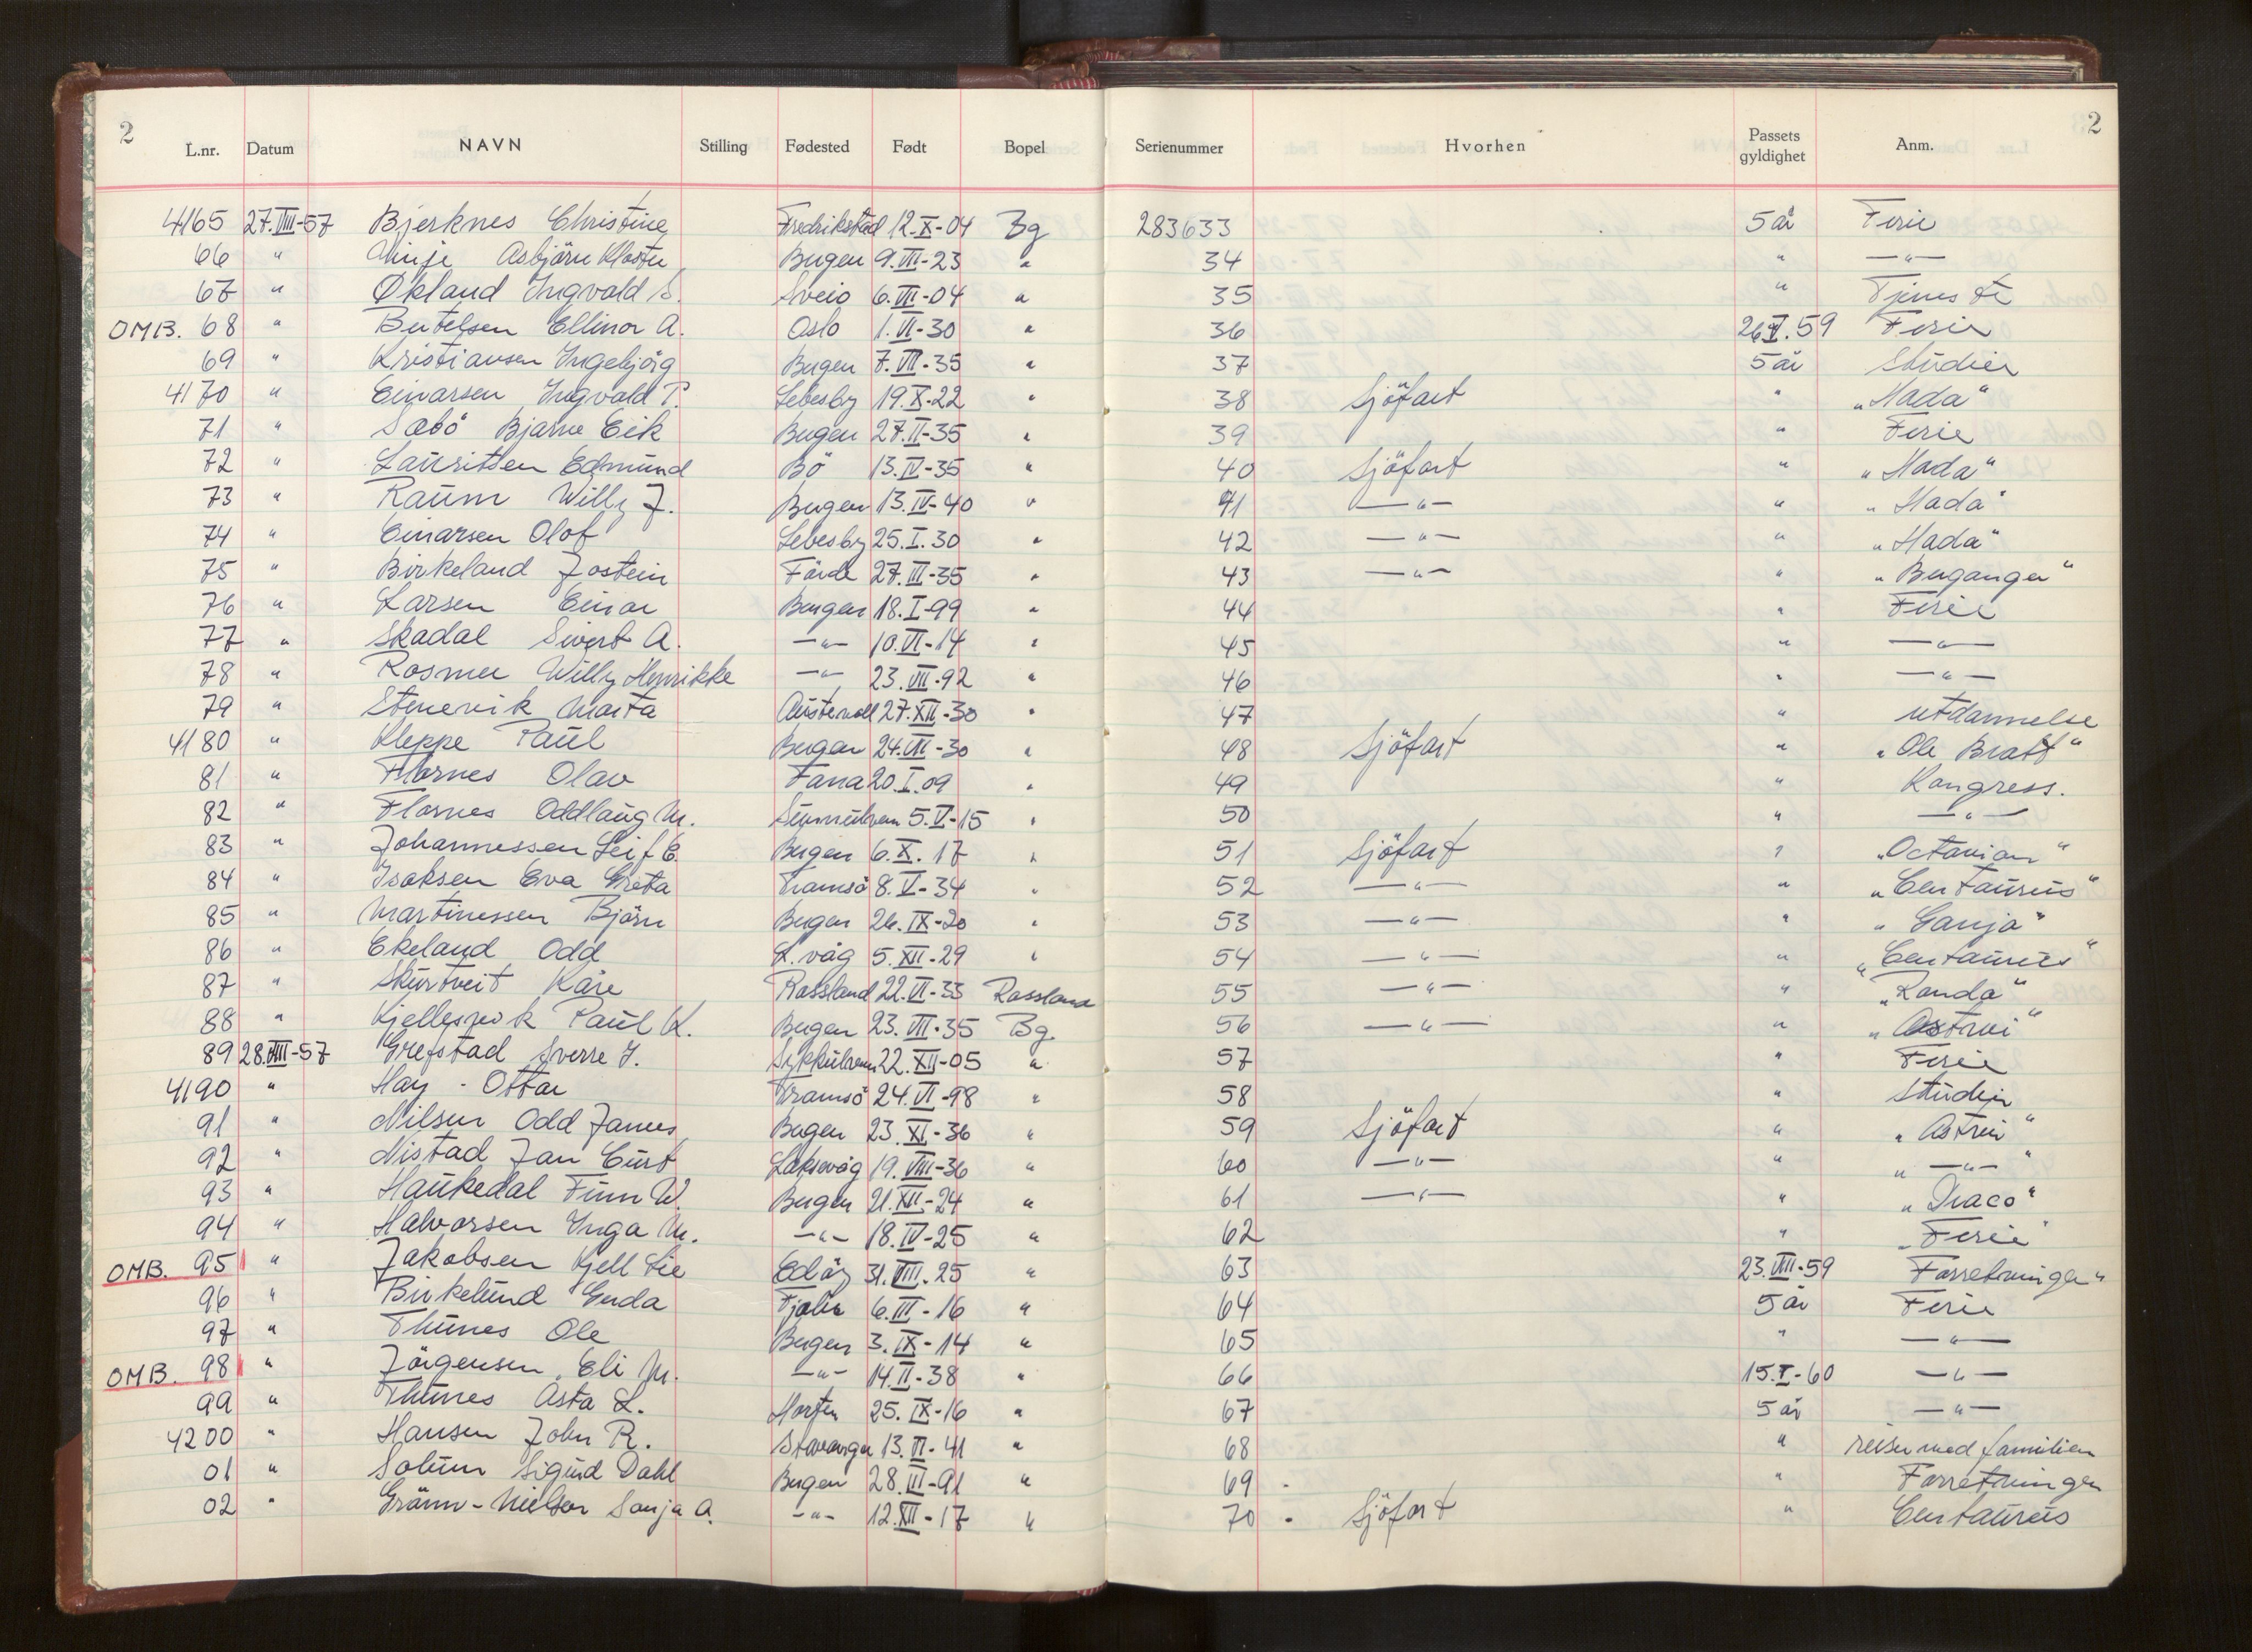 2 2
L.nr. Datum NAVN Stilling Fødested Født Bopel Serienummer Hvorhen Passets gyldighet Anm.
4165 27.VIII-57 Bjerknes Christine Fredrikstad 12.X-04 Bg 283633 5 år Ferie
66 " Minje Asbjörn Kloster Bergen 9.VII-23 " 34 " —"—
67 " Økland Ingvald S. Sveio 6.VII-04 " 35 " Tjeneste
OMB. 68 " Bertelsen Ellinor A. Oslo 1.VI-30 " 36 26.V.59 Ferie
69 " Kristiansen Ingebjörg Bergen 7.VII-35 " 37 5 år Studier
4170 " Einarsen Ingvald P. Lebesby 19.X-22 " 38 Sjöfart " "Hada"
71 " Sæbö Bjarne Eik Bergen 27.II-35 " 39 " Ferie
72 " Lauritsen Edmund Bö 13.IV-35 " 40 Sjöfart " "Hada"
73 " Raum Willy J. Bergen 13.IV-40 " 41 —"— " "Hada"
74 " Einarsen Olof Lebesby 25.I.30 " 42 —"— " "Hada"
75 " Birkeland Jostein Förde 27.III-35 " 43 —"— " "Berganger"
76 " Larsen Einar Bergen 18.I-99 " 44 " Ferie
77 " Skadal Sivert A. —"— 10.VI-14 " 45 " —"—
78 " Rosmer Willy Henrikke —"— 23.VII-92 " 46 " —"—
79 " Stenevik Marta Austevoll 27.XII-30 " 47 " utdannelse
4180 " Kleppe Paul Bergen 24.VII-30 " 48 Sjöfart " "Ole Bratt"
81 " Flornes Olav Fana 20.I.09 " 49 " Kongress.
82 " Flornes Oddlaug M. 5.V-15 " 50 " —"—
83 " Johannessen Leif E. Bergen 6.X.17 " 51 Sjöfart " "Octavian"
84 " Isaksen Eva Greta Tromsö 8.V-34 " 52 —"— " "Centaurus"
85 " Martinessen Björn Bergen 26.IX-20 " 53 —"— " "Ganja"
86 " Ekeland Odd L.våg 5.XII-29 " 54 —"— " "Centaurus"
87 " Skurtveit Kåre Rossland 22.VI-33 Rossland 55 —"— " "Randa"
88 " Kjellesvik Paul K. Bergen 23.VII-35 Bg. 56 —"— " "Astrei"
89 28.VIII-57 Grefstad Sverre J. Sykkylven 22.XII-05 " 57 " Ferie
4190 " Hay - Ottar Tromsö 24.VI-98 " 58 " Studier
91 " Nilsen Odd James Bergen 23.XI-36 " 59 Sjöfart " "Astrei"
92 " Nistad Jan Curt Laksevåg 19.VIII-36 " 60 —"— " "—"—"
93 " Haukedal Finn W. Bergen 21.XII-24 " 61 —"— " "Draco"
94 " Halvorsen Inga M. —"— 18.IV-25 " 62 " "Ferie"
OMB. 95 " Jakobsen Kjell Lie Edöy 31.VIII.25 " 63 23.VIII-59 Forretninger"
96 " Birkelund Gerda Fjaler 6.III-16 " 64 5 år Ferie
97 " Thunes Ole Bergen 3.IX-14 " 65 " —"—
OMB. 98 " Jörgensen Eli M. —"— 14.II-38 " 66 15.I-60 —"—
99 " Thunes Asta L. Horten 25.IX-16 " 67 5 år —"—
4200 " Hansen John R. Stavanger 13.VI-41 " 68 " reiser med familien
01 " Solum Sigurd Dahl Bergen 28.III-91 " 69 " Forretninger
02 " Grann-Nielsen Sonja A. —"— 12.XII-17 " 70 Sjöfart " Centaurus